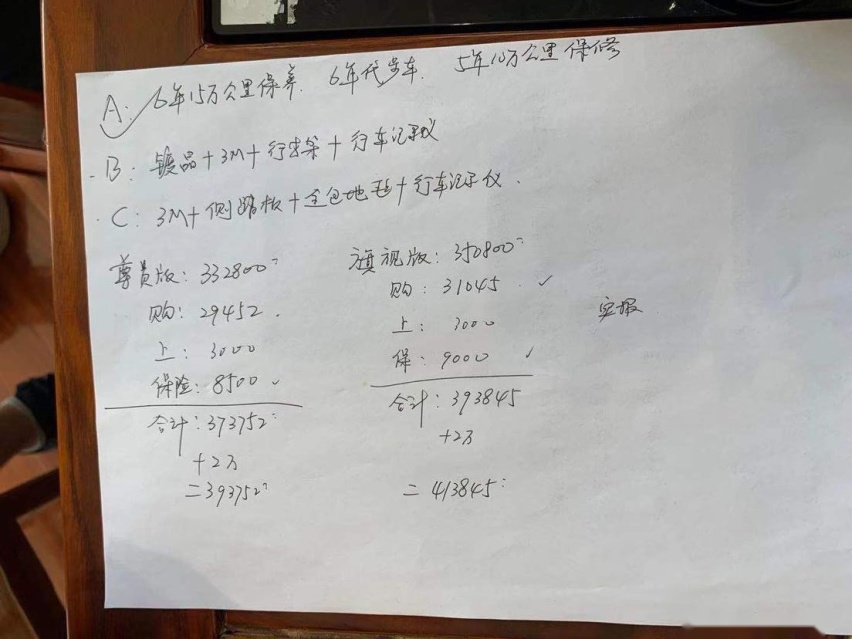 A: 6年15万公里保养. 6年代步车. 5年10万公里保修
B: 镀晶+3M+行李架+行车记录仪
C: 3M+侧踏板+全包地毯+行车记录仪.
尊贵版: 332800
购: 29452.
上: 3000
保险: 8500
合计: 373752
+2万
=393752
旗视版: 350800
购: 31045
上: 3000
保: 9000
合计: 393845
+2万
=413845
实报